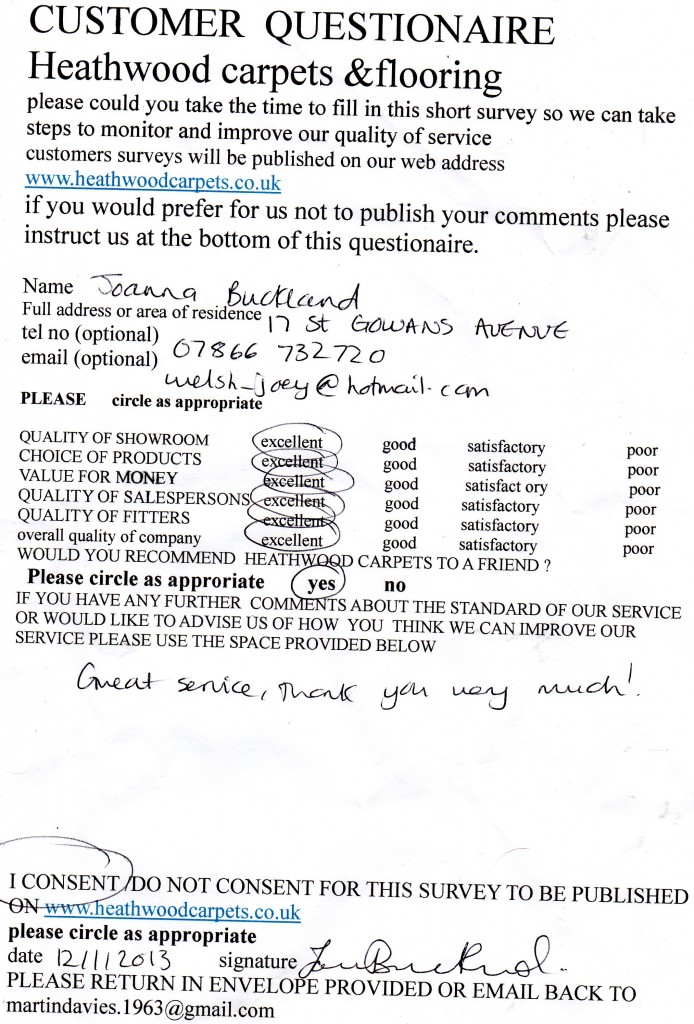 CUSTOMER QUESTIONAIRE
Heathwood carpets &flooring
please could you take the time to fill in this short survey so we can take
steps to monitor and improve our quality of service
customers surveys will be published on our web address
www.heathwoodcarpets.co.uk
if you would prefer for us not to publish your comments please
instruct us at the bottom of this questionaire.
Name Joanna Buckland
Full address or area of residence 17 St GOWANS AVENUE
tel no (optional) 07866 732720
email (optional) welsh_joey@hotmail.com
PLEASE circle as appropriate
QUALITY OF SHOWROOM excellent good satisfactory poor
CHOICE OF PRODUCTS excellent good satisfactory poor
VALUE FOR MONEY excellent good satisfact ory poor
QUALITY OF SALESPERSONS excellent good satisfactory poor
QUALITY OF FITTERS excellent good satisfactory poor
overall quality of company excellent good satisfactory poor
WOULD YOU RECOMMEND HEATHWOOD CARPETS TO A FRIEND ?
Please circle as approriate yes no
IF YOU HAVE ANY FURTHER COMMENTS ABOUT THE STANDARD OF OUR SERVICE
OR WOULD LIKE TO ADVISE US OF HOW YOU THINK WE CAN IMPROVE OUR
SERVICE PLEASE USE THE SPACE PROVIDED BELOW
Great service, thank you very much!
I CONSENT /DO NOT CONSENT FOR THIS SURVEY TO BE PUBLISHED
ON www.heathwoodcarpets.co.uk
please circle as appropriate
date 12/1/2013 signature
PLEASE RETURN IN ENVELOPE PROVIDED OR EMAIL BACK TO
martindavies.1963@gmail.com